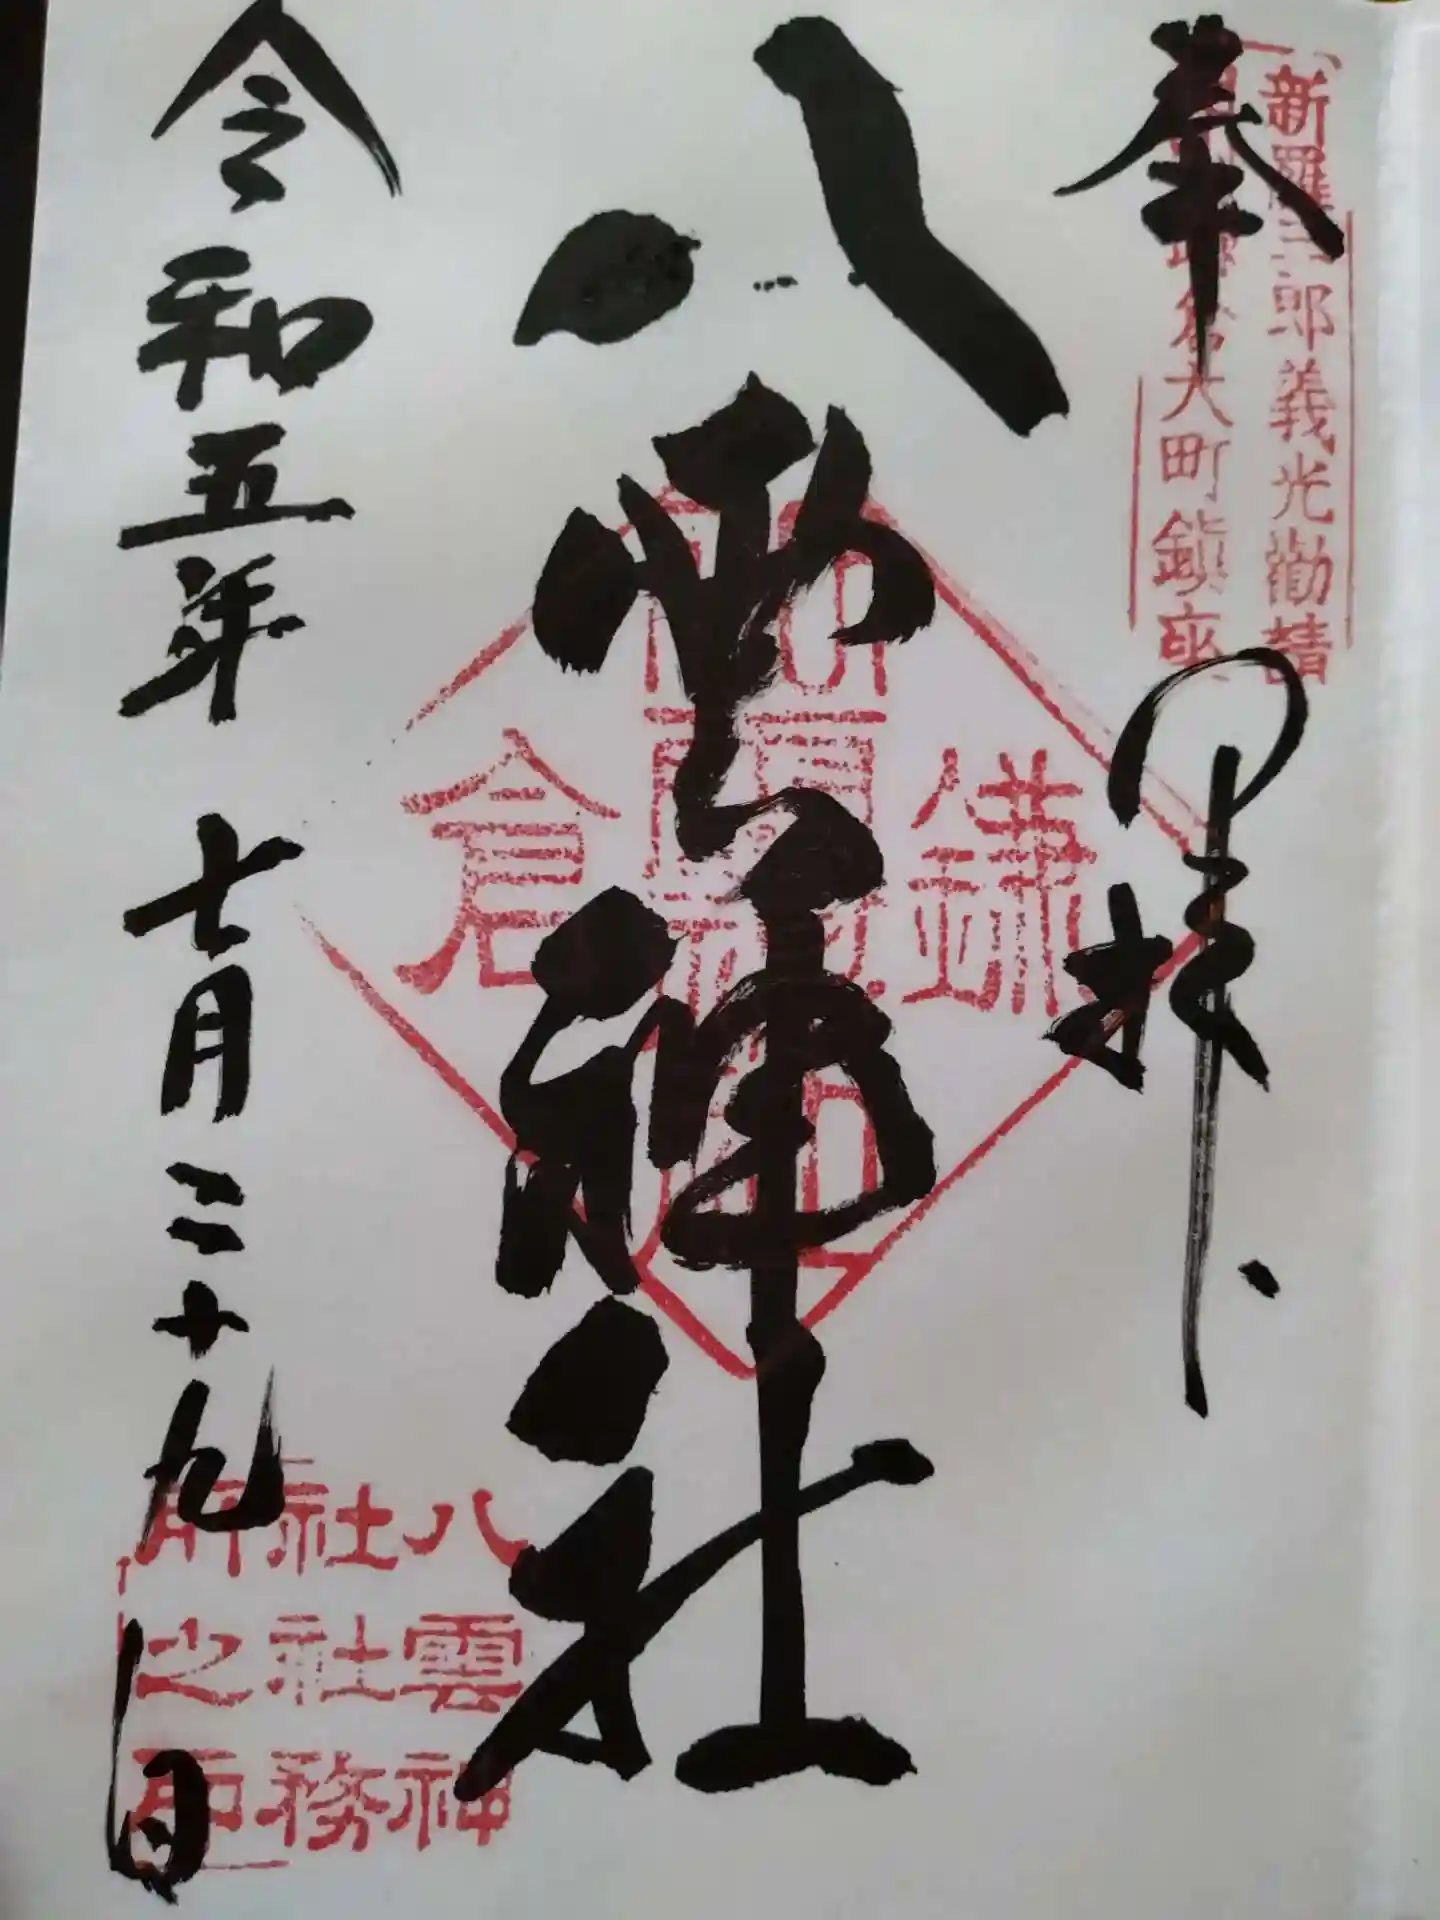 奉拝
新羅三郎義光勧請
鎌倉大町鎮座
八雲神社
鎌
倉
令和五年七月二十九日
八雲神
社社務
所之印